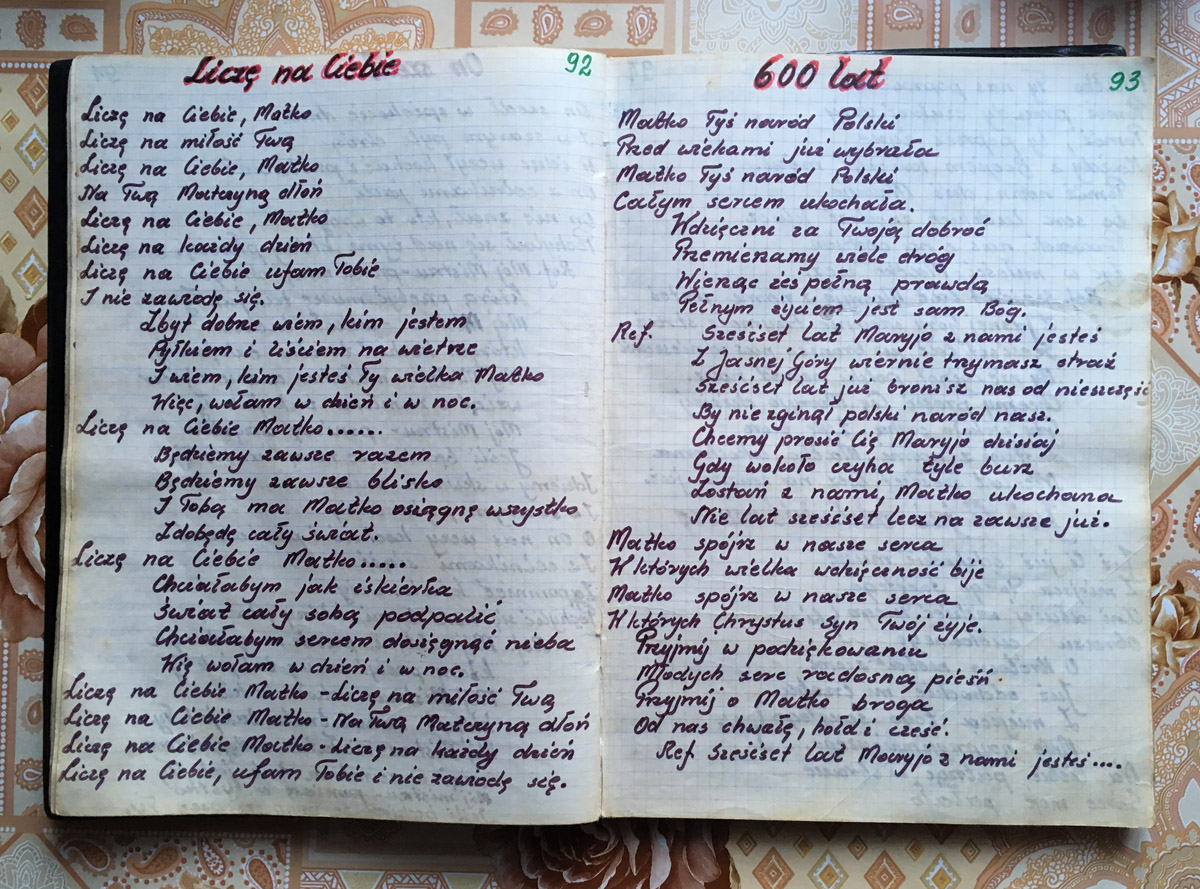 Liczę na Ciebie
92
Liczę na Ciebie, Matko
Liczę na miłość Twą
Liczę na Ciebie, Matko
Na Twą Matczyną dłoń
Liczę na Ciebie, Matko
Liczę na każdy dzień
Liczę na Ciebie ufam Tobie
I nie zawiodę się.
Zbyt dobrze wiem, kim jestem
Pyłkiem i liściem na wietrze
I wiem, kim jesteś Ty wielka Matko
Więc, wołam w dzień i w noc.
Liczę na Ciebie Matko......
Będziemy zawsze razem
Będziemy zawsze blisko
Z Tobą ma Matko osiągnę wszystko
Zdobędę cały świat.
Liczę na Ciebie Matko.....
Chciałabym jak iskierka
Świat cały sobą podpalić
Chciałabym sercem dosięgnąć nieba
Więc wołam w dzień i w noc.
Liczę na Ciebie Matko - Liczę na miłość Twą
Liczę na Ciebie Matko - Na Twą Matczyną dłoń
Liczę na Ciebie Matko - Liczę na każdy dzień
Liczę na Ciebie, ufam Tobie i nie zawiodę się.
600 lat
93
Matko Tyś naród Polski
Przed wiekami już wybrała
Matko Tyś naród Polski
Całym sercem ukochała.
Wdzięczni za Twoją dobroć
Przemierzamy wiele dróg
Wierząc że pełną prawdą
Pełnym życiem jest sam Bóg.
Ref. Sześćset lat Maryjo z nami jesteś
Z Jasnej Góry wiernie trzymasz straż
Sześćset lat już bronisz nas od nieszczęść
By nie zginął polski naród nasz.
Chcemy prosić Cię Maryjo dzisiaj
Gdy wokoło czyha tyle burz
Zostań z nami, Matko ukochana
Nie lat sześćset lecz na zawsze już.
Matko spójrz w nasze serca
W których wielka wdzięczność bije
Matko spójrz w nasze serca
W których Chrystus Syn Twój żyje.
Przyjmij w podziękowaniu
Młodych serc radosną pieśń.
Przyjmij o Matko droga
Od nas chwałę, hołd i cześć.
Ref Sześćset lat Maryjo z nami jesteś....